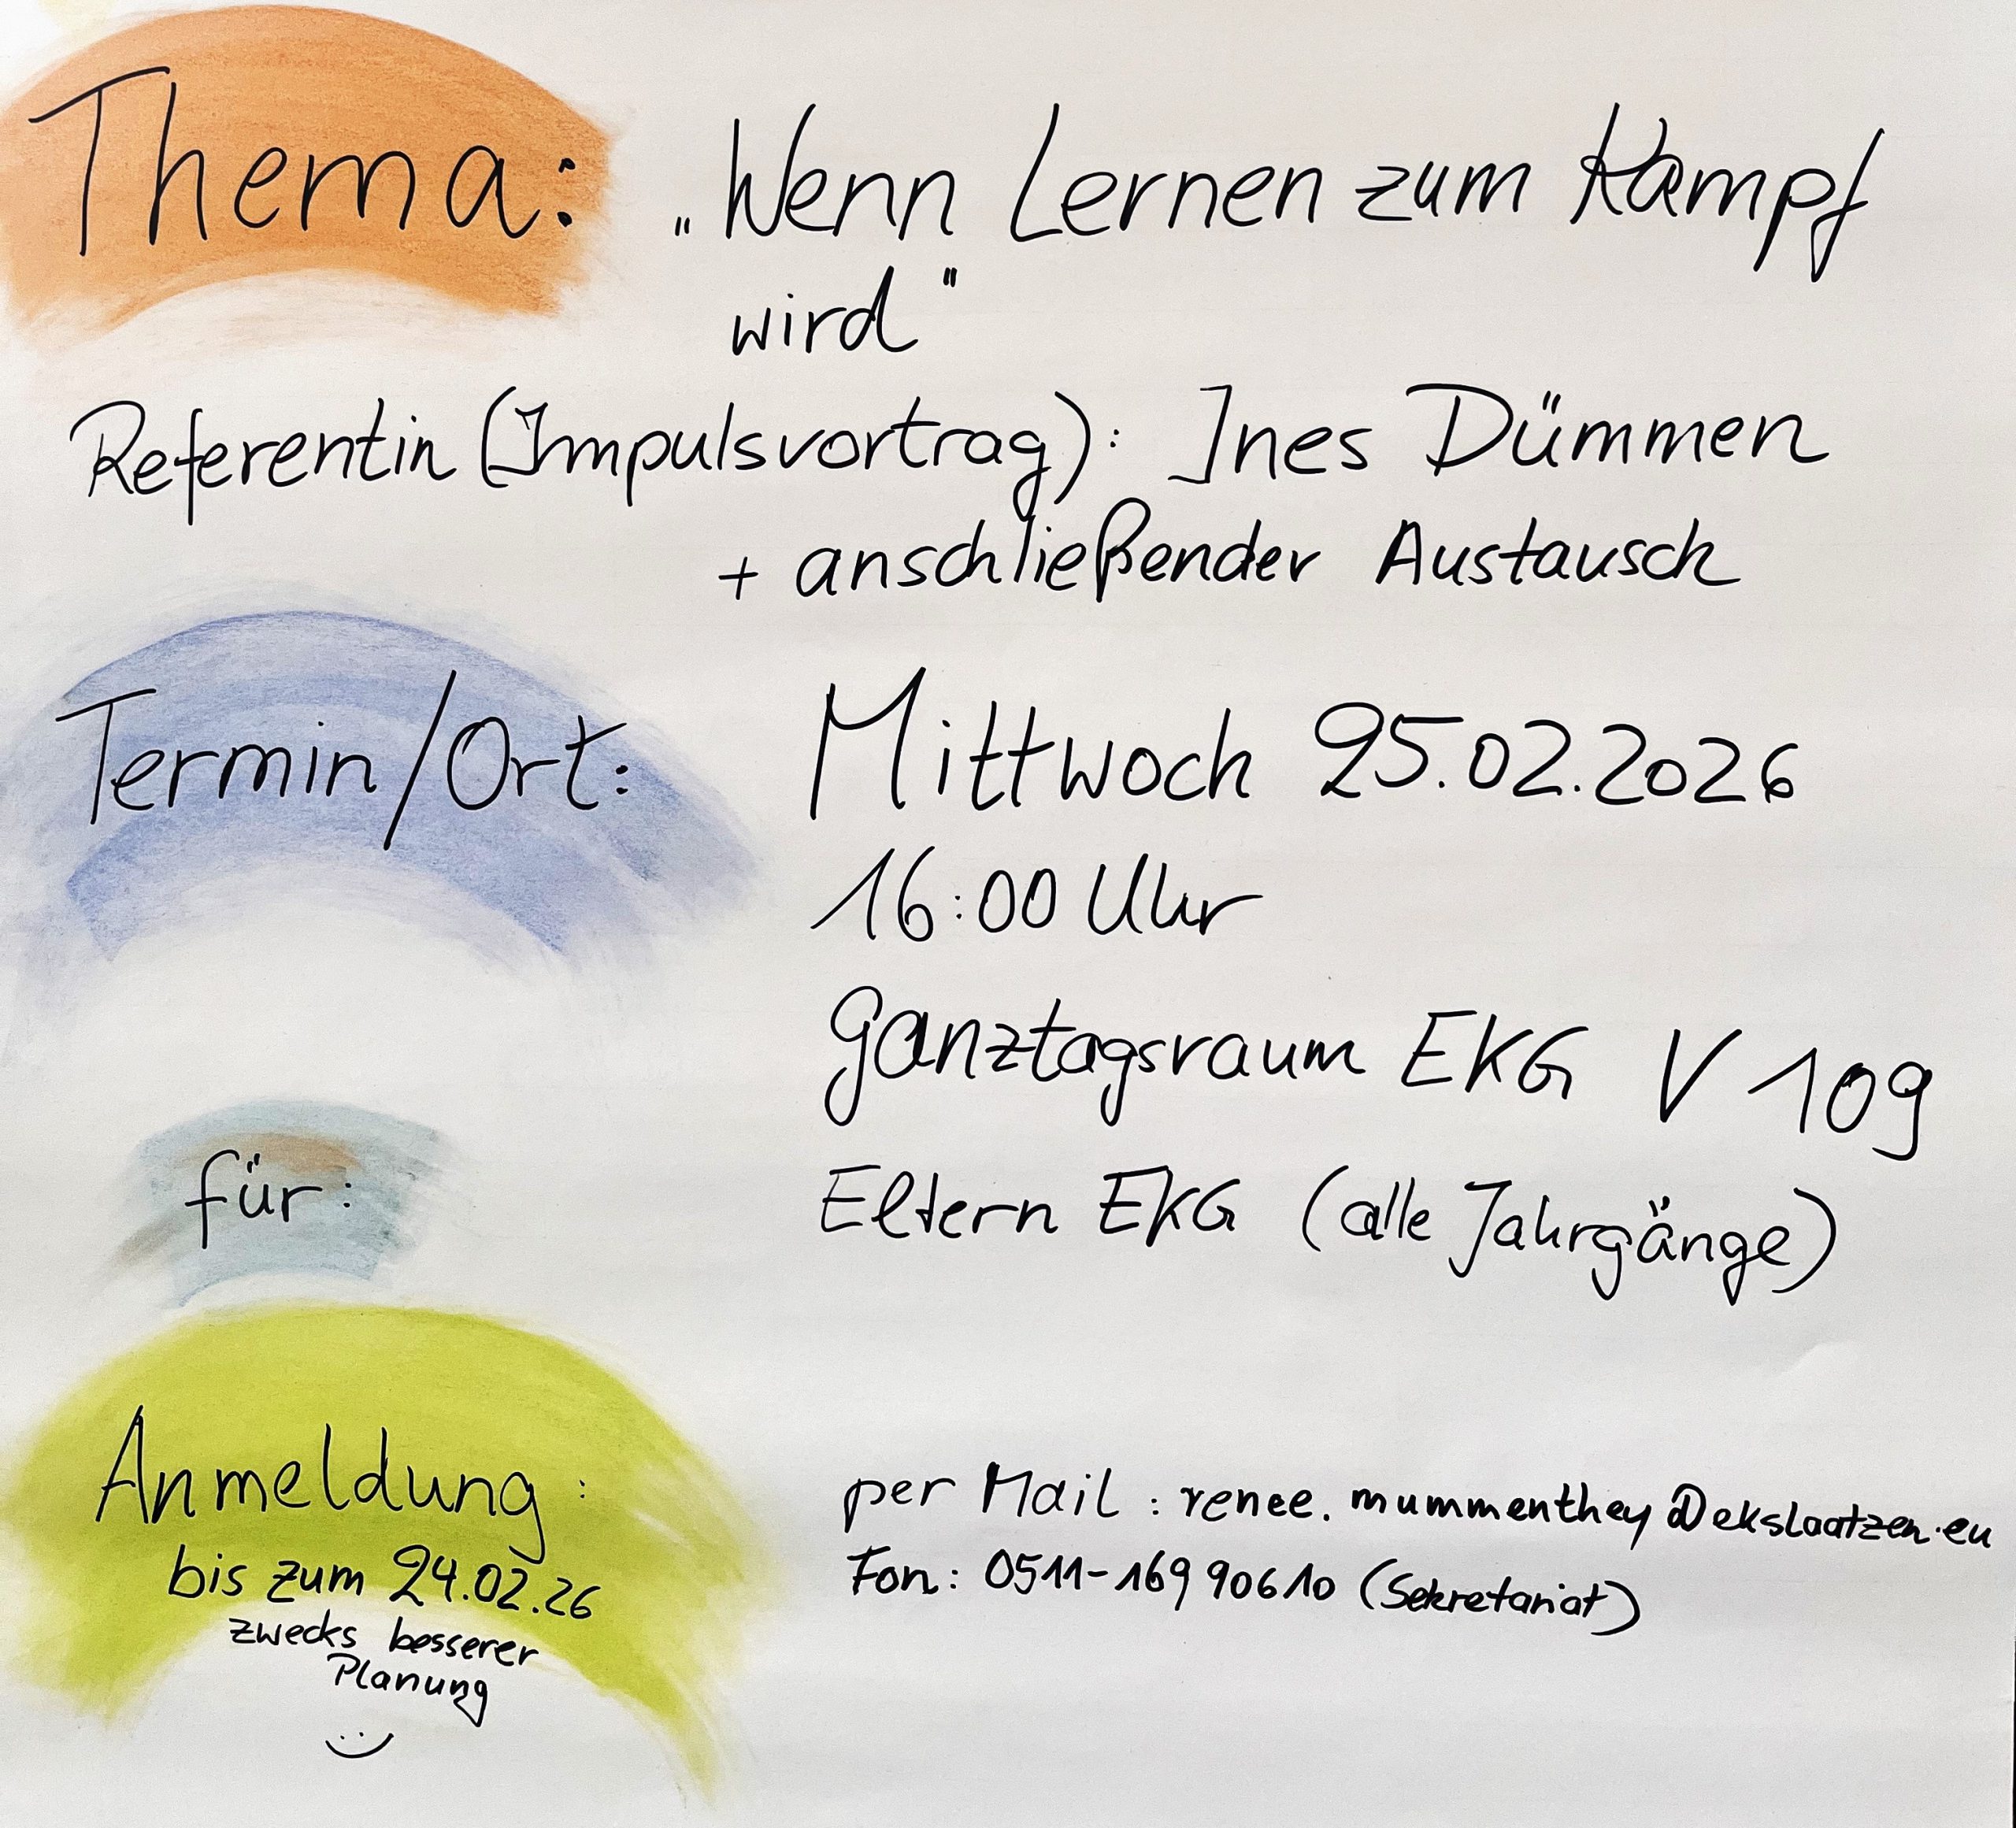 Thema: „Wenn Lernen zum Kampf
wird"
Referentin (Impulsvortrag): Ines Dümmen
+ anschließender Austausch
Termin/Ort: Mittwoch 25.02.2026
16:00 Uhr
Ganztagsraum EKG V 109
für: Eltern EKG (alle Jahrgänge)
Anmeldung:
bis zum 24.02.26
zwecks besserer
Planung
per Mail: renee.mummenthey@ekslaatzen.eu
Fon: 0511-16990610 (Sekretariat)